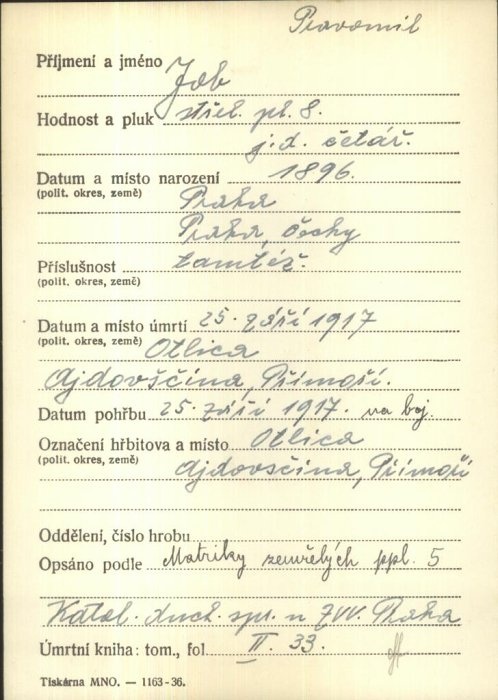 Pravomil
Příjmení a jméno Job
Hodnost a pluk střel. pl. 8.
j. d. četař.
Datum a místo narození 1896.
(polit. okres, země) Praha
Praha, Čechy
Příslušnost tamtéž.
(polit. okres, země)
Datum a místo úmrtí 25. září 1917
(polit. okres, země) Otlica
Ajdovščina, Přímoří.
Datum pohřbu 25. září 1917. na boj.
Označení hřbitova a místo Otlica
(polit. okres, země) Ajdovsčina, Přímoří
Oddělení, číslo hrobu
Opsáno podle Matriky zemřelých ppl. 5
Katol. duch. spr. u ZVV. Praha
Úmrtní kniha: tom., fol. II. 33.
Tiskárna MNO. — 1163-36.